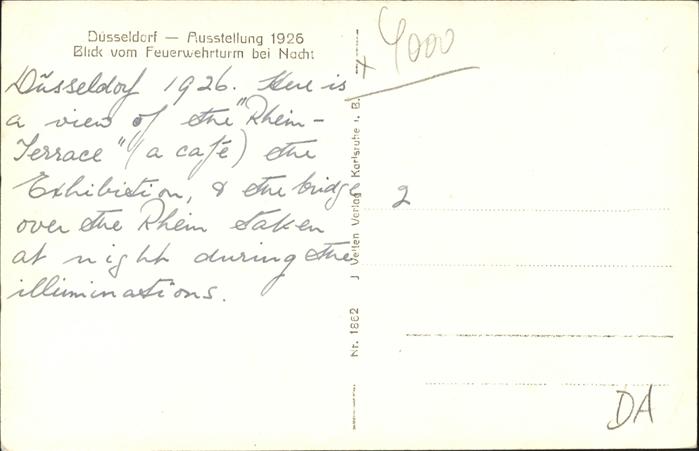 Düsseldorf — Ausstellung 1926
Blick vom Feuerwehrturm bei Nacht
Düsseldorf 1926. Here is
a view of the "Rhein-
Terrace" (a café) the
Exhibition, & the bridge
over the Rhein taken
at night during the
illuminations.
Nr. 1862 J. Velten Verlag, Karlsruhe i. B.
+ 4000
2
DA